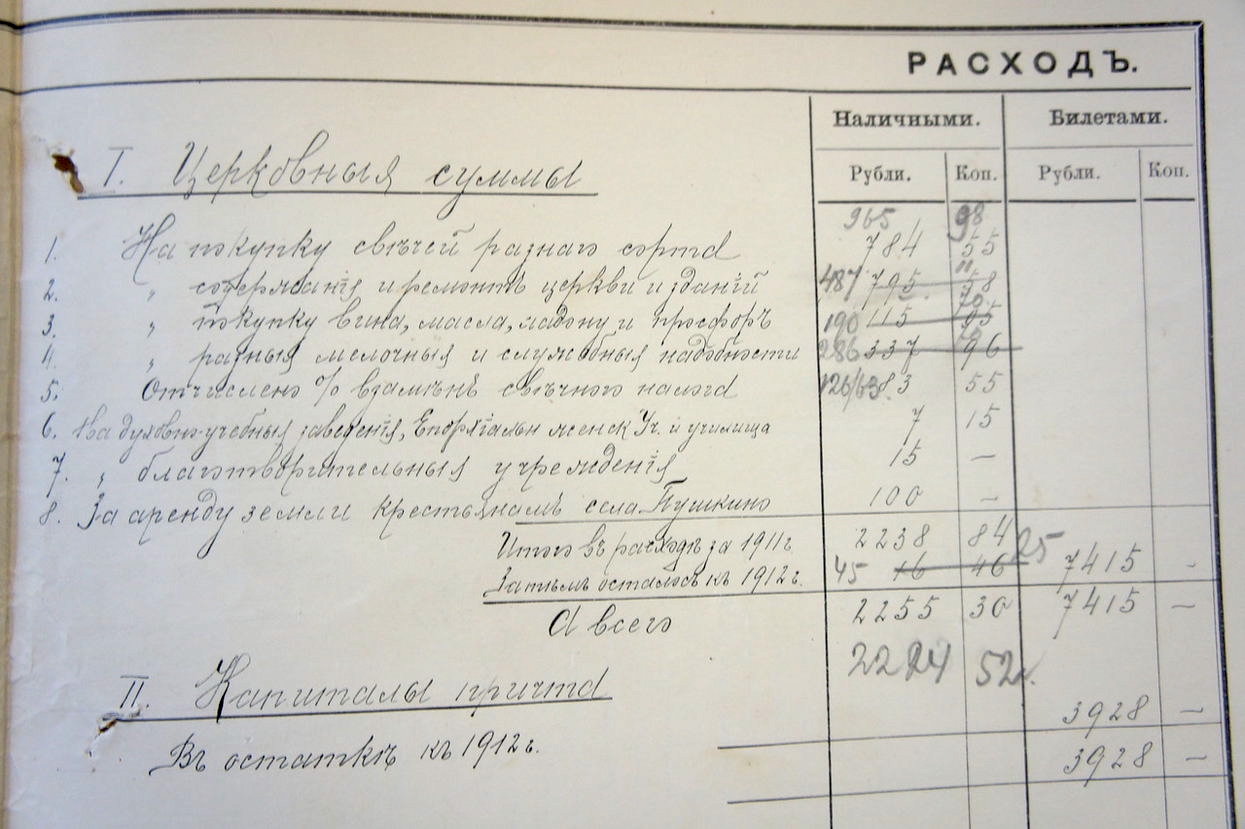 РАСХОДЪ.
Наличными. Билетами.
Рубли. Коп. Рубли. Коп.
I. Церковныя суммы
965 98
1. На покупку свѣчей разнаго сорта 784 55
2. „ содержанія и ремонтъ церкви и зданій 487 795 58
3. „ покупку вина, масла, ладону и просфоръ 190 115 05
4. „ разныя мелочныя и служебныя надобности 286 337 96
5. Отчислено % взамѣнъ свѣчного налога 126/63 83 55
6. На духовно-учебныя заведенія, женск. Уч. и училища 7 15
7. „ благотворительныя учрежденія 15 —
8. За аренду земли крестьянамъ села Пушкино 100 —
Итого въ расходѣ за 1911 г. 2238 84
Затѣмъ осталось къ 1912 г. 45 16 46 25 7415 —
А всего 2255 30 7415 —
52
II. Капиталы причта
3928 —
Въ остаткѣ къ 1912 г. 3928 —